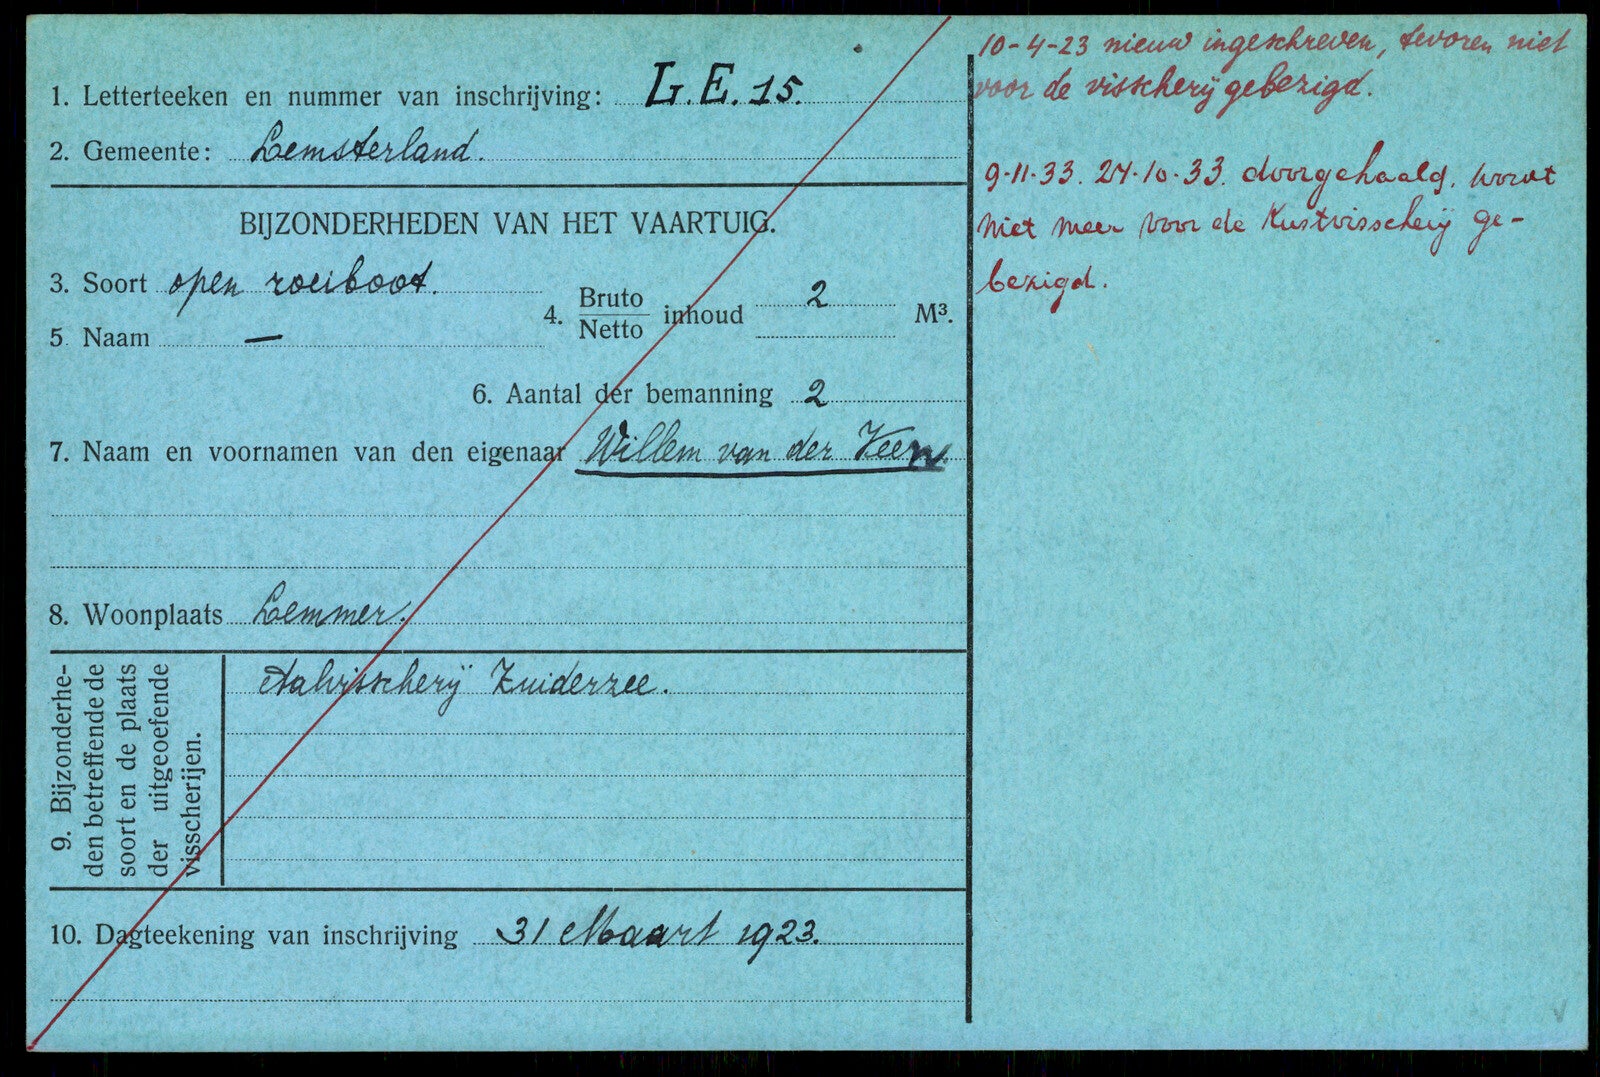 1. Letterteeken en nummer van inschrijving: L.E. 15.
2. Gemeente: Lemsterland.
BIJZONDERHEDEN VAN HET VAARTUIG.
3. Soort open roeiboot.
4. Bruto
Netto inhoud 2 M³.
5. Naam —
6. Aantal der bemanning 2
7. Naam en voornamen van den eigenaar Willem van der Veen.
8. Woonplaats Lemmer.
9. Bijzonderhe-
den betreffende de
soort en de plaats
der uitgeoefende
visscherijen.
Aalvisscherij Zuiderzee.
10. Dagteekening van inschrijving 31 Maart 1923.
10-4-23 nieuw ingeschreven, tevoren niet
voor de visscherij gebezigd.
9-11-33. 24-10-33. doorgehaald, wordt
niet meer voor de Kustvisscherij ge-
bezigd.